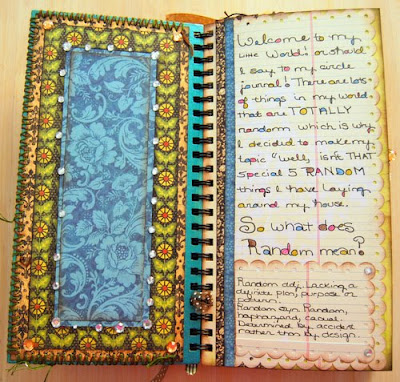 Welcome to my
Little World! or should
I say to my circle
journal! There are lots
of things in my world
that are TOTALLY
random which is why
I decided to make my
topic "Well, isn't THAT
Special 5 RANDOM
things I have laying
around my house.
So what does
Random mean?
Random adj. Lacking a
definite plan, purpose or
pattern.
Random syn. Random,
haphazard, casual
Determined by accident
rather than by design.